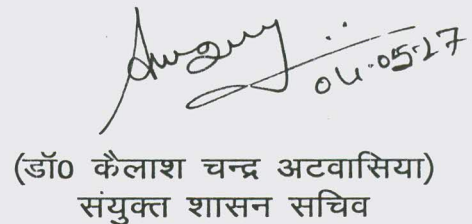 04-05-27
(डॉ0 कैलाश चन्द्र अटवासिया)
संयुक्त शासन सचिव